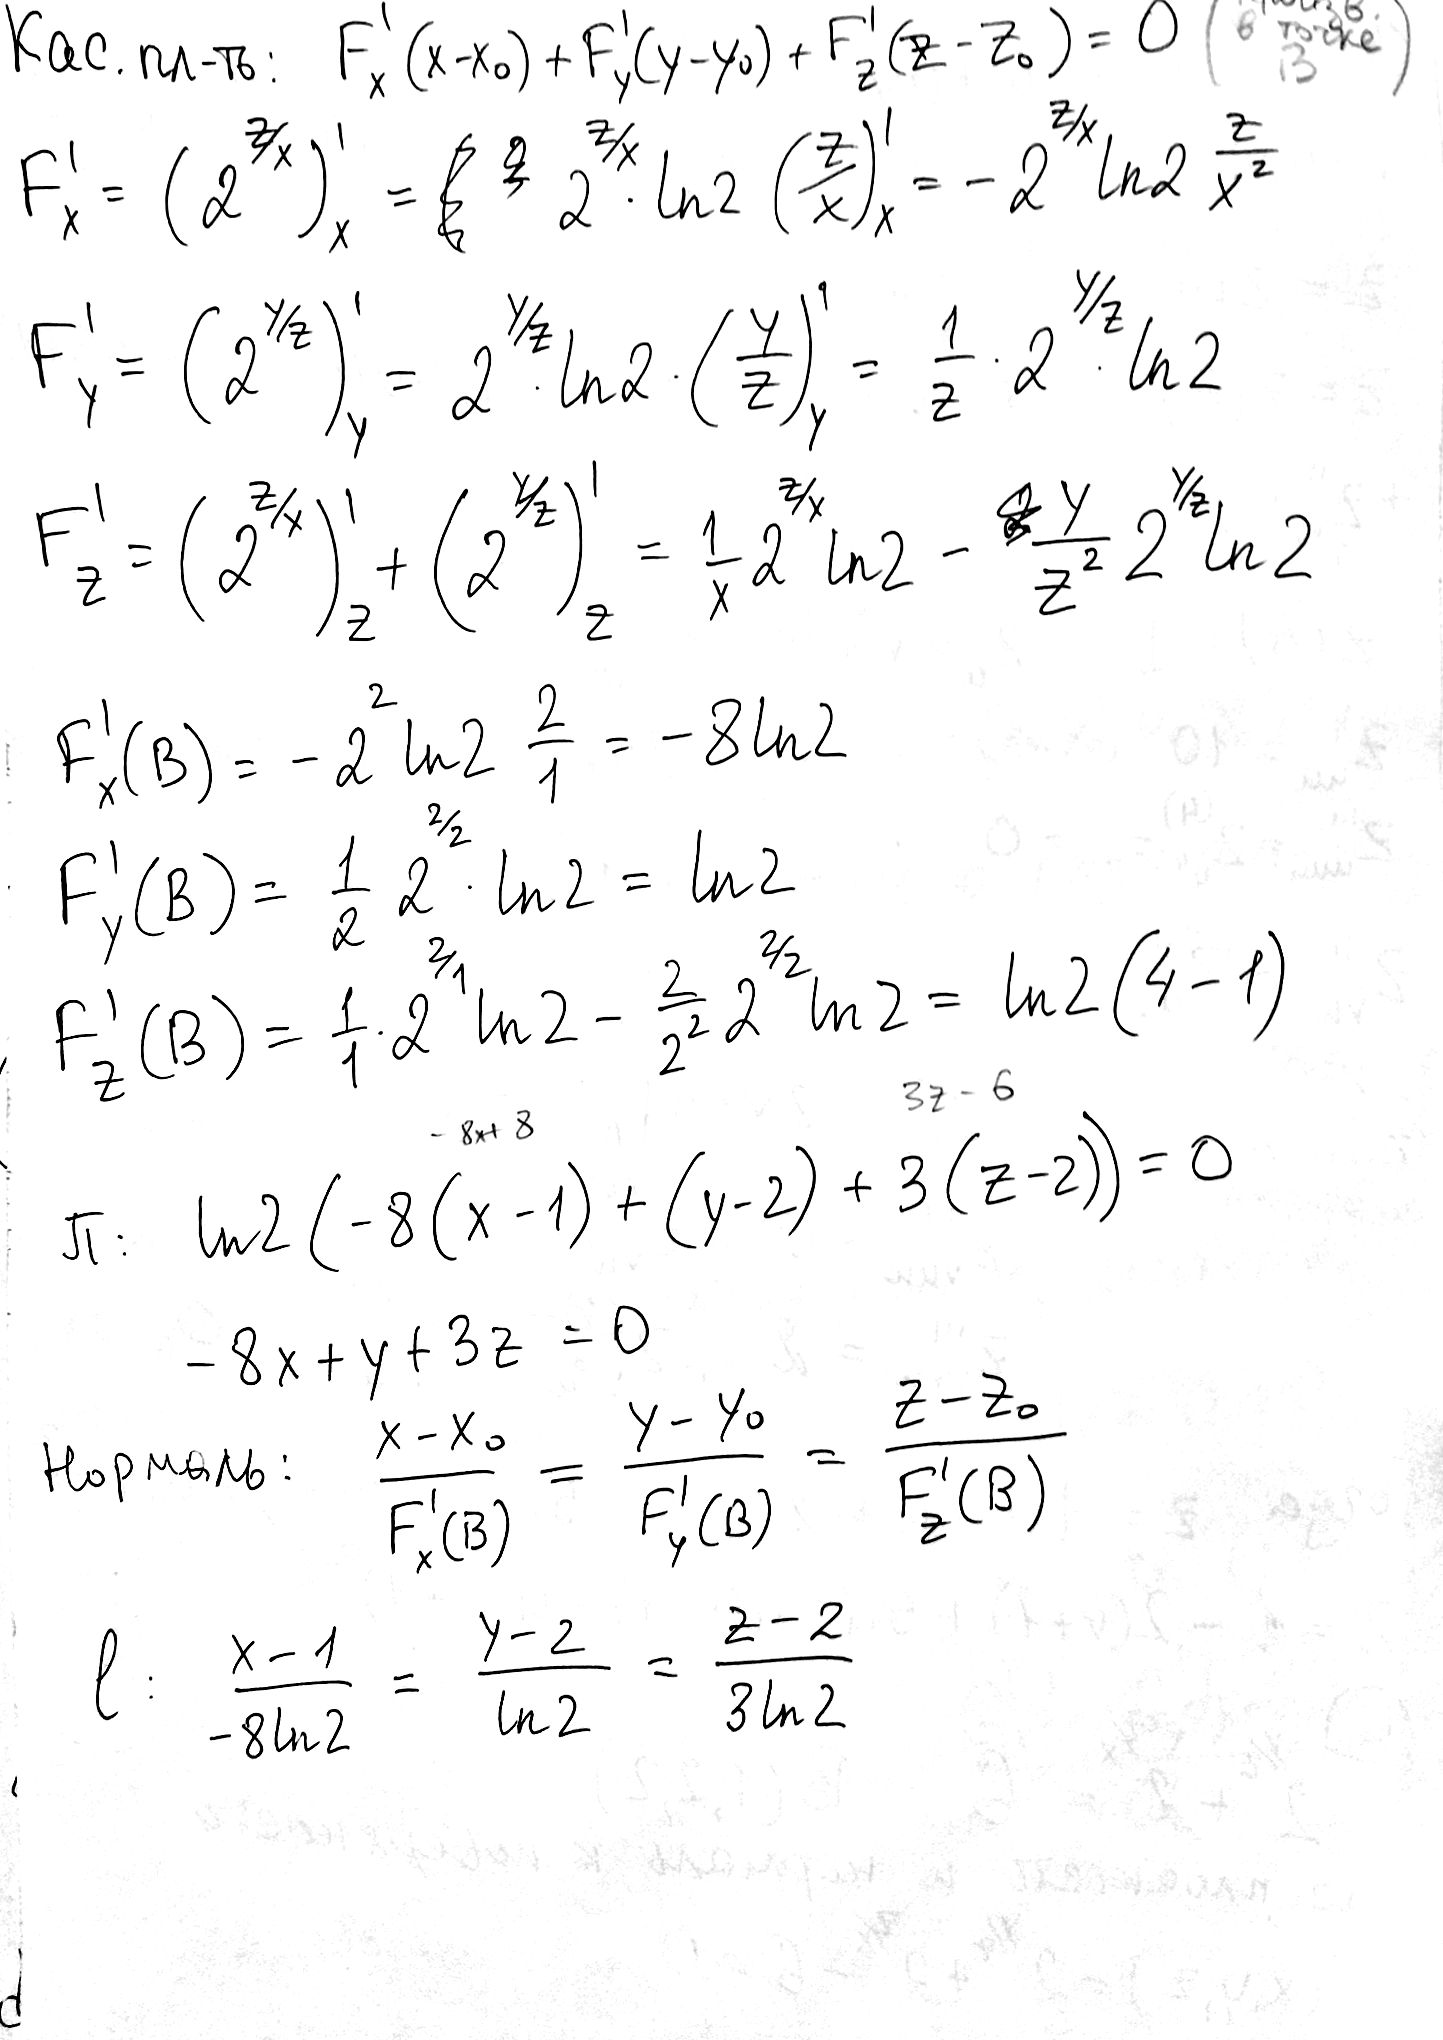 Кас. пл-ть: F'x (x-x₀) + F'y(y-y₀) + F'z(z-z₀) = 0 ( в точке B )
F'x = (2^(z/x))'x = 2^(z/x) · ln2 (z/x)'x = -2^(z/x) ln2 z/x²
F'y = (2^(y/z))'y = 2^(y/z) · ln2 · (y/z)'y = 1/z · 2^(y/z) · ln2
F'z = (2^(z/x))'z + (2^(y/z))'z = 1/x 2^(z/x) ln2 - y/z² 2^(y/z) ln2
F'x(B) = -2² ln2 2/1 = -8ln2
F'y(B) = 1/2 2^(2/2) · ln2 = ln2
F'z(B) = 1/1 · 2^(2/1) ln2 - 2/2² 2^(2/2) ln2 = ln2(4-1)
-8x+8 3z-6
π: ln2(-8(x-1) + (y-2) + 3(z-2)) = 0
-8x+y+3z = 0
Нормаль: (x-x₀)/F'x(B) = (y-y₀)/F'y(B) = (z-z₀)/F'z(B)
l: (x-1)/(-8ln2) = (y-2)/ln2 = (z-2)/(3ln2)